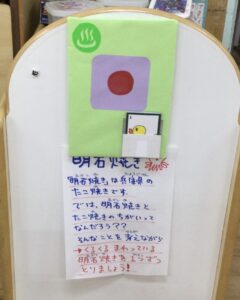 明石焼き
明石焼きは兵庫県の
たこ焼きです。
では、明石焼きと
たこ焼きのちがいって
なんだろう??
そんなことを考えながら
くるくるまわっている
明石焼きを1つずつ
とりましょう!